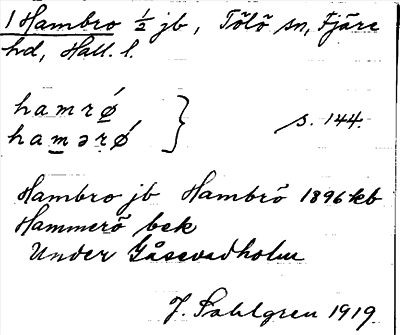 1 Hambro ½ jb, Tölö sn, Fjäre
hd, Hall. l.
hamrǿ
hamərǿ } s. 144.
Hambro jb Hambrö 1896 kb
Hammerö bek
Under Gåsevadholm
J. Sahlgren 1919